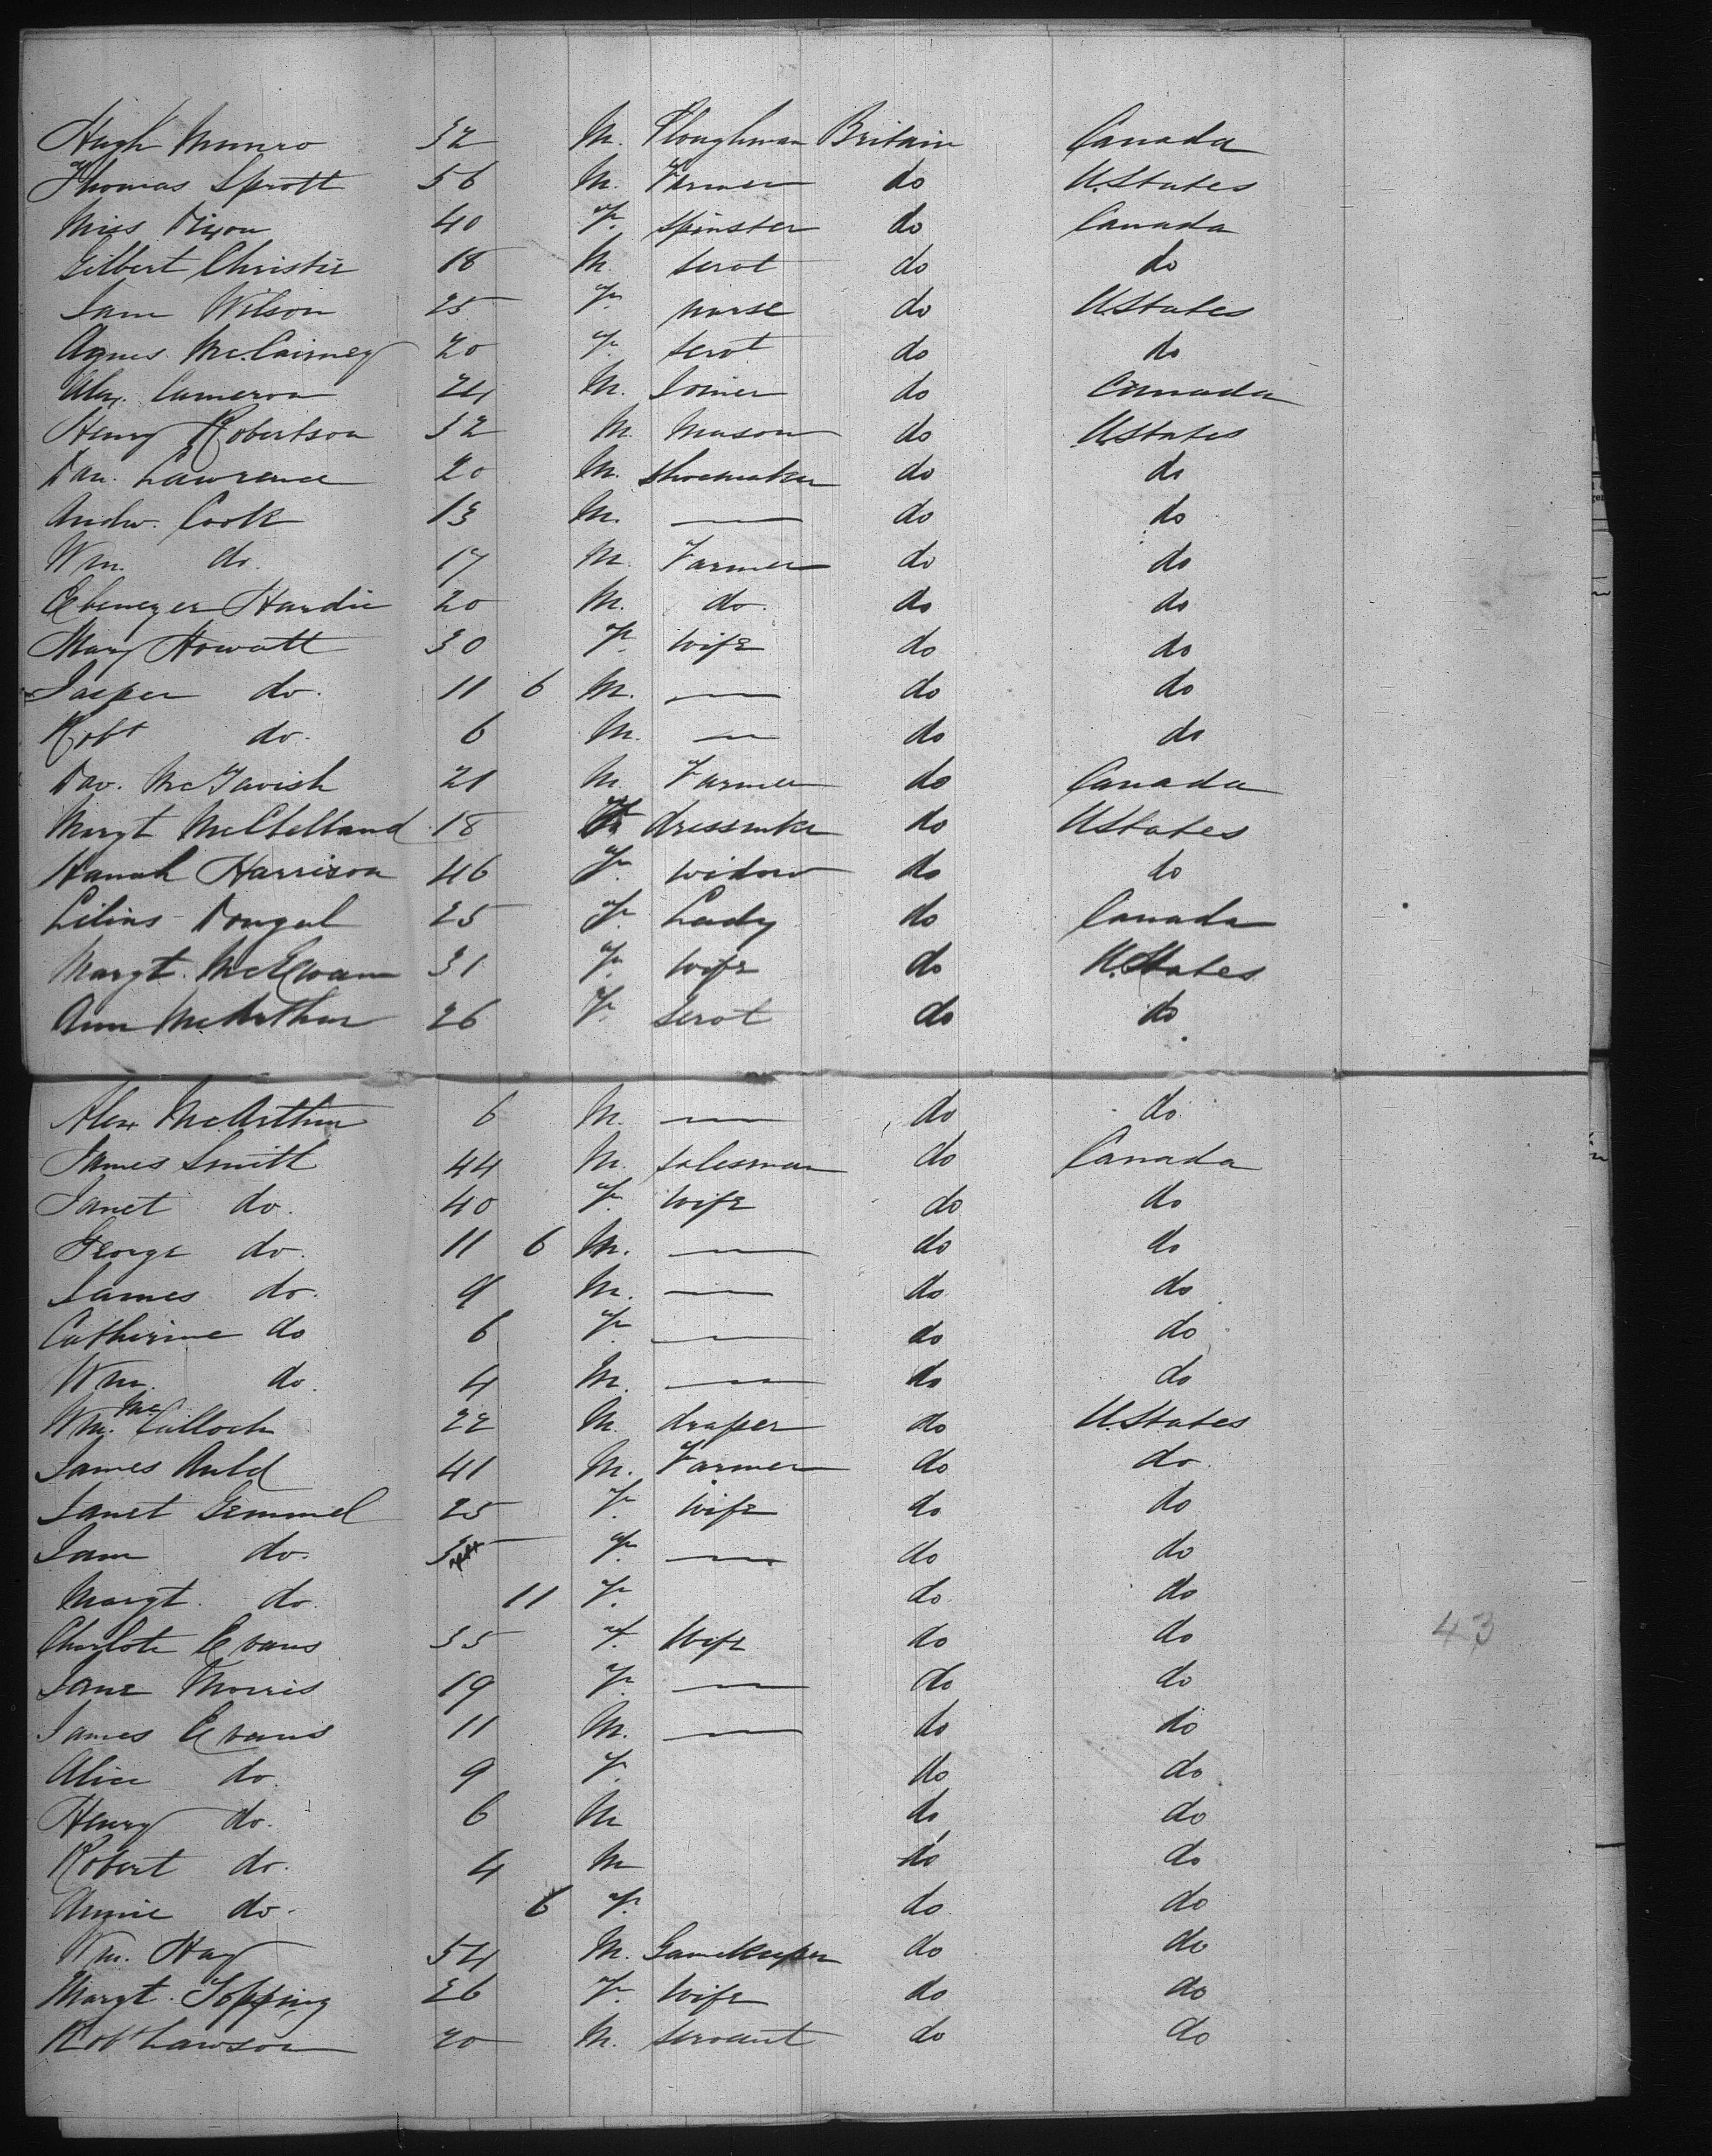 Hugh Munro 32 M. Ploughman Britain Canada
Thomas Sprott 56 M. Farmer do U.States
Miss Dixon 40 F. Spinster do Canada
Gilbert Christie 18 M. Servt do do
Jane Wilson 25 F. nurse do UStates
Agnes McCairney 20 F. Servt do do
Alex. Cameron 24 M. Joiner do Canada
Henry Robertson 32 M. Mason do UStates
Dan. Lawrence 20 M. Shoemaker do do
Andw. Cook 13 M. — do do
Wm. do. 17 M. Farmer do do
Ebenezer Hardie 20 M. do. do do
Mary Howatt 30 F. Wife do do
Jasper do. 11 6 M. — do do
Robt do. 6 M. — do do
Dav. McTavish 21 M. Farmer do Canada
Margt McClelland 18 F dressmkr do UStates
Hanah Harrison 46 F. Widow do do
Lilias Dougal 25 F. Lady do Canada
Margt. McEwan 31 F. Wife do U.States
Ann McArthur 26 F. Servt do do
Alex McArthur 6 M. — do do
James Smith 44 M. Salesman do Canada
Janet do. 40 F. Wife do do
George do. 11 6 M. — do do
James do. 9 M. — do do
Catherine do 6 F. — do do
Wm. do. 4 M. — do do
Wm. McCulloch 22 M. draper do U.States
James Auld 41 M. Farmer do do.
Janet Gemmel 25 F. Wife do do
Jane do. F. — do do
Margt. do. 11 F. do do
Charlote Evans 35 F. Wife do do
Jane Morris 19 F. — do do
James Evans 11 M. — do do
Alice do. 9 F. do do
Henry do. 6 M do do
Robert do. 4 M do do
Annie do. 6 F. do do
Wm. Hay 54 M. Gamekeeper do do
Margt. Topping 26 F. Wife do do
Robt Lawson 20 M. Servant do do
43